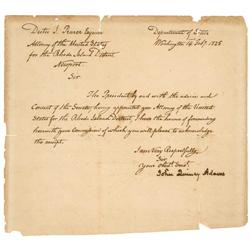 Dutee J. Pearce Esquire
Attorney of the United States
for the Rhode Island District
Newport
Department of State
Washington 14 Feby. 1825
Sir
The President by and with the advice and
Consent of the Senate having appointed you Attorney of the United
States for the Rhode Island District, I have the honor of forwarding
herewith your Commission of which you will please to acknowledge
the receipt.
I am Very Respectfully
Sir
your Obedt Servt
John Quincy Adams